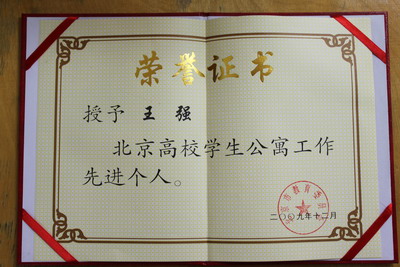 荣誉证书
授予 王 强
北京高校学生公寓工作
先进个人。
二〇〇九年十二月